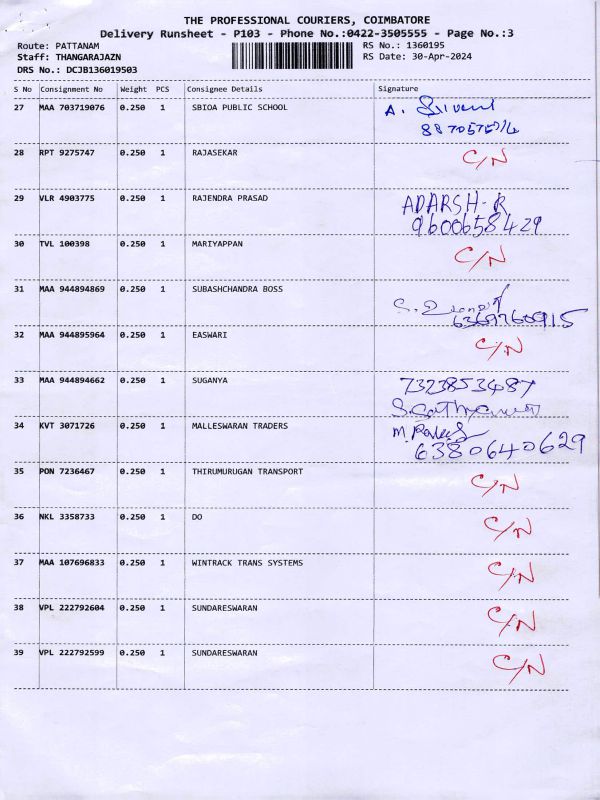 THE PROFESSIONAL COURIERS, COIMBATORE
Delivery Runsheet - P103 - Phone No.:0422-3505555 - Page No.:3
Route: PATTANAM RS No.: 1360195
Staff: THANGARAJAZN RS Date: 30-Apr-2024
DRS No.: DCJB136019503
S No Consignment No Weight PCS Consignee Details Signature
27 MAA 703719076 0.250 1 SBIOA PUBLIC SCHOOL A.
28 RPT 9275747 0.250 1 RAJASEKAR C/N
29 VLR 4903775 0.250 1 RAJENDRA PRASAD ADARSH-R
9600658429
30 TVL 100398 0.250 1 MARIYAPPAN C/N
31 MAA 944894869 0.250 1 SUBASHCHANDRA BOSS S.
6369760915
32 MAA 944895964 0.250 1 EASWARI C/N
33 MAA 944894662 0.250 1 SUGANYA 7323853487
34 KVT 3071726 0.250 1 MALLESWARAN TRADERS M.
6380640629
35 PON 7236467 0.250 1 THIRUMURUGAN TRANSPORT C/N
36 NKL 3358733 0.250 1 DO C/N
37 MAA 107696833 0.250 1 WINTRACK TRANS SYSTEMS C/N
38 VPL 222792604 0.250 1 SUNDARESWARAN C/N
39 VPL 222792599 0.250 1 SUNDARESWARAN C/N